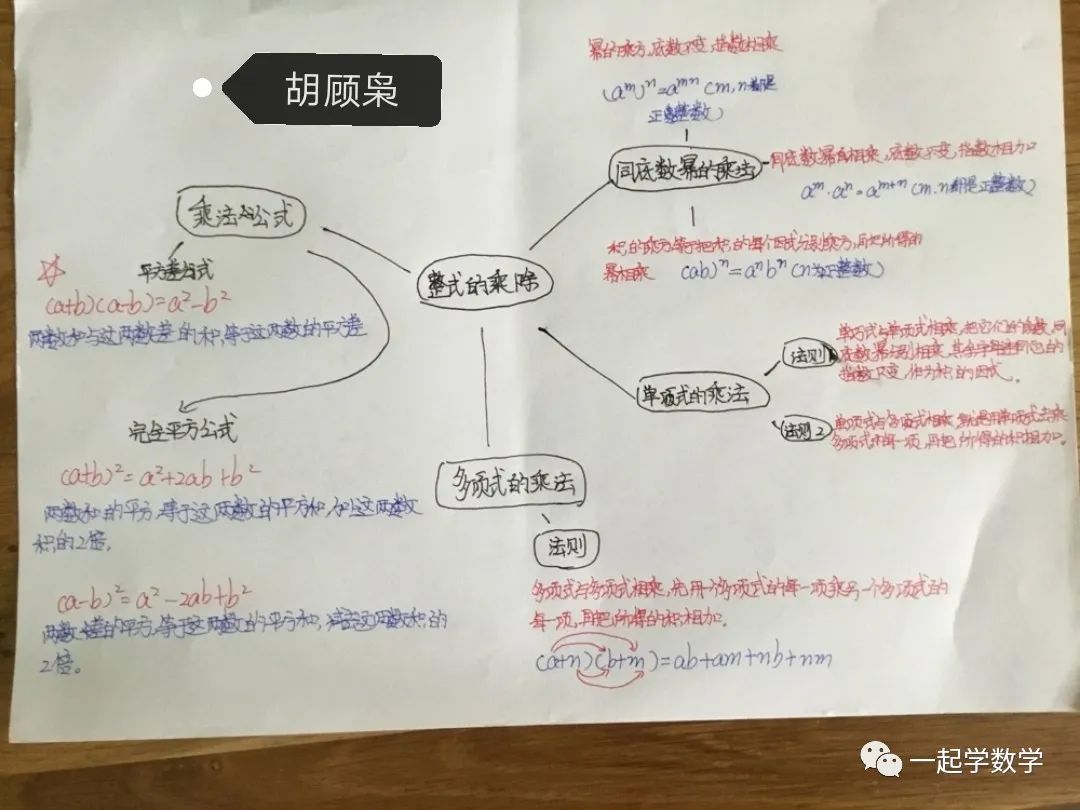 胡顾枭
幂的乘方,底数不变,指数相乘
(aᵐ)ⁿ=aᵐⁿ (m,n都是
正整数)
同底数幂的乘法
同底数幂相乘,底数不变,指数相加
aᵐ·aⁿ=aᵐ⁺ⁿ (m.n都是正整数)
积的乘方,等于把积的每个因式分别乘方,再把所得的
幂相乘 (ab)ⁿ=aⁿbⁿ (n为正整数)
整式的乘除
乘法公式
平方差公式
(a+b)(a-b)=a²-b²
两数和与这两数差的积,等于这两数的平方差
完全平方公式
(a+b)²=a²+2ab+b²
两数和的平方,等于这两数的平方和,加这两数
积的2倍,
(a-b)²=a²-2ab+b²
两数差的平方,等于这两数的平方和,减去这两数积的
2倍。
单项式的乘法
法则1
单项式与单项式相乘,把它们的系数,同
底数幂分别相乘,其余字母连同它的
指数不变,作为积的因式。
法则2
单项式与多项式相乘,就是用单项式去乘
多项式的每一项,再把所得的积相加。
多项式的乘法
法则
多项式与多项式相乘,先用一个多项式的每一项乘另一个多项式的
每一项,再把所得的积相加。
(a+n)(b+m)=ab+am+nb+nm
一起学数学